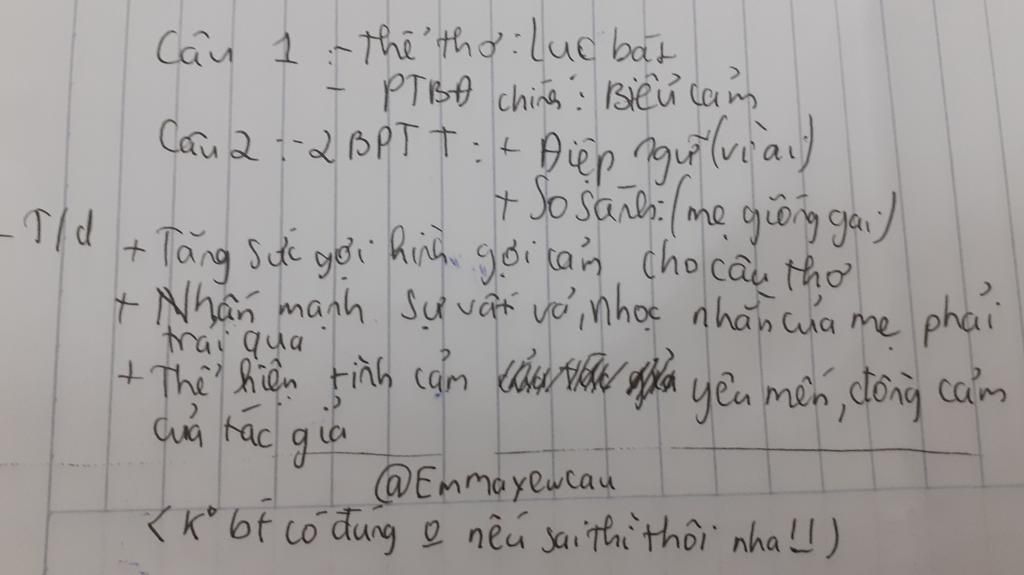 Câu 1 :- Thể thơ: Lục bát
- PTBĐ chính: Biểu cảm
Câu 2 :- 2 BPTT: + Điệp ngữ (vì ai)
+ So sánh: (mẹ giống gai)
- T/d + Tăng sức gợi hình gợi cảm cho câu thơ
+ Nhấn mạnh sự vất vả, nhọc nhằn của mẹ phải
trải qua
+ Thể hiện tình cảm yêu mến, đồng cảm
của tác giả
@Emmayeucau
< K° bt có đúng o nếu sai thì thôi nha!!)